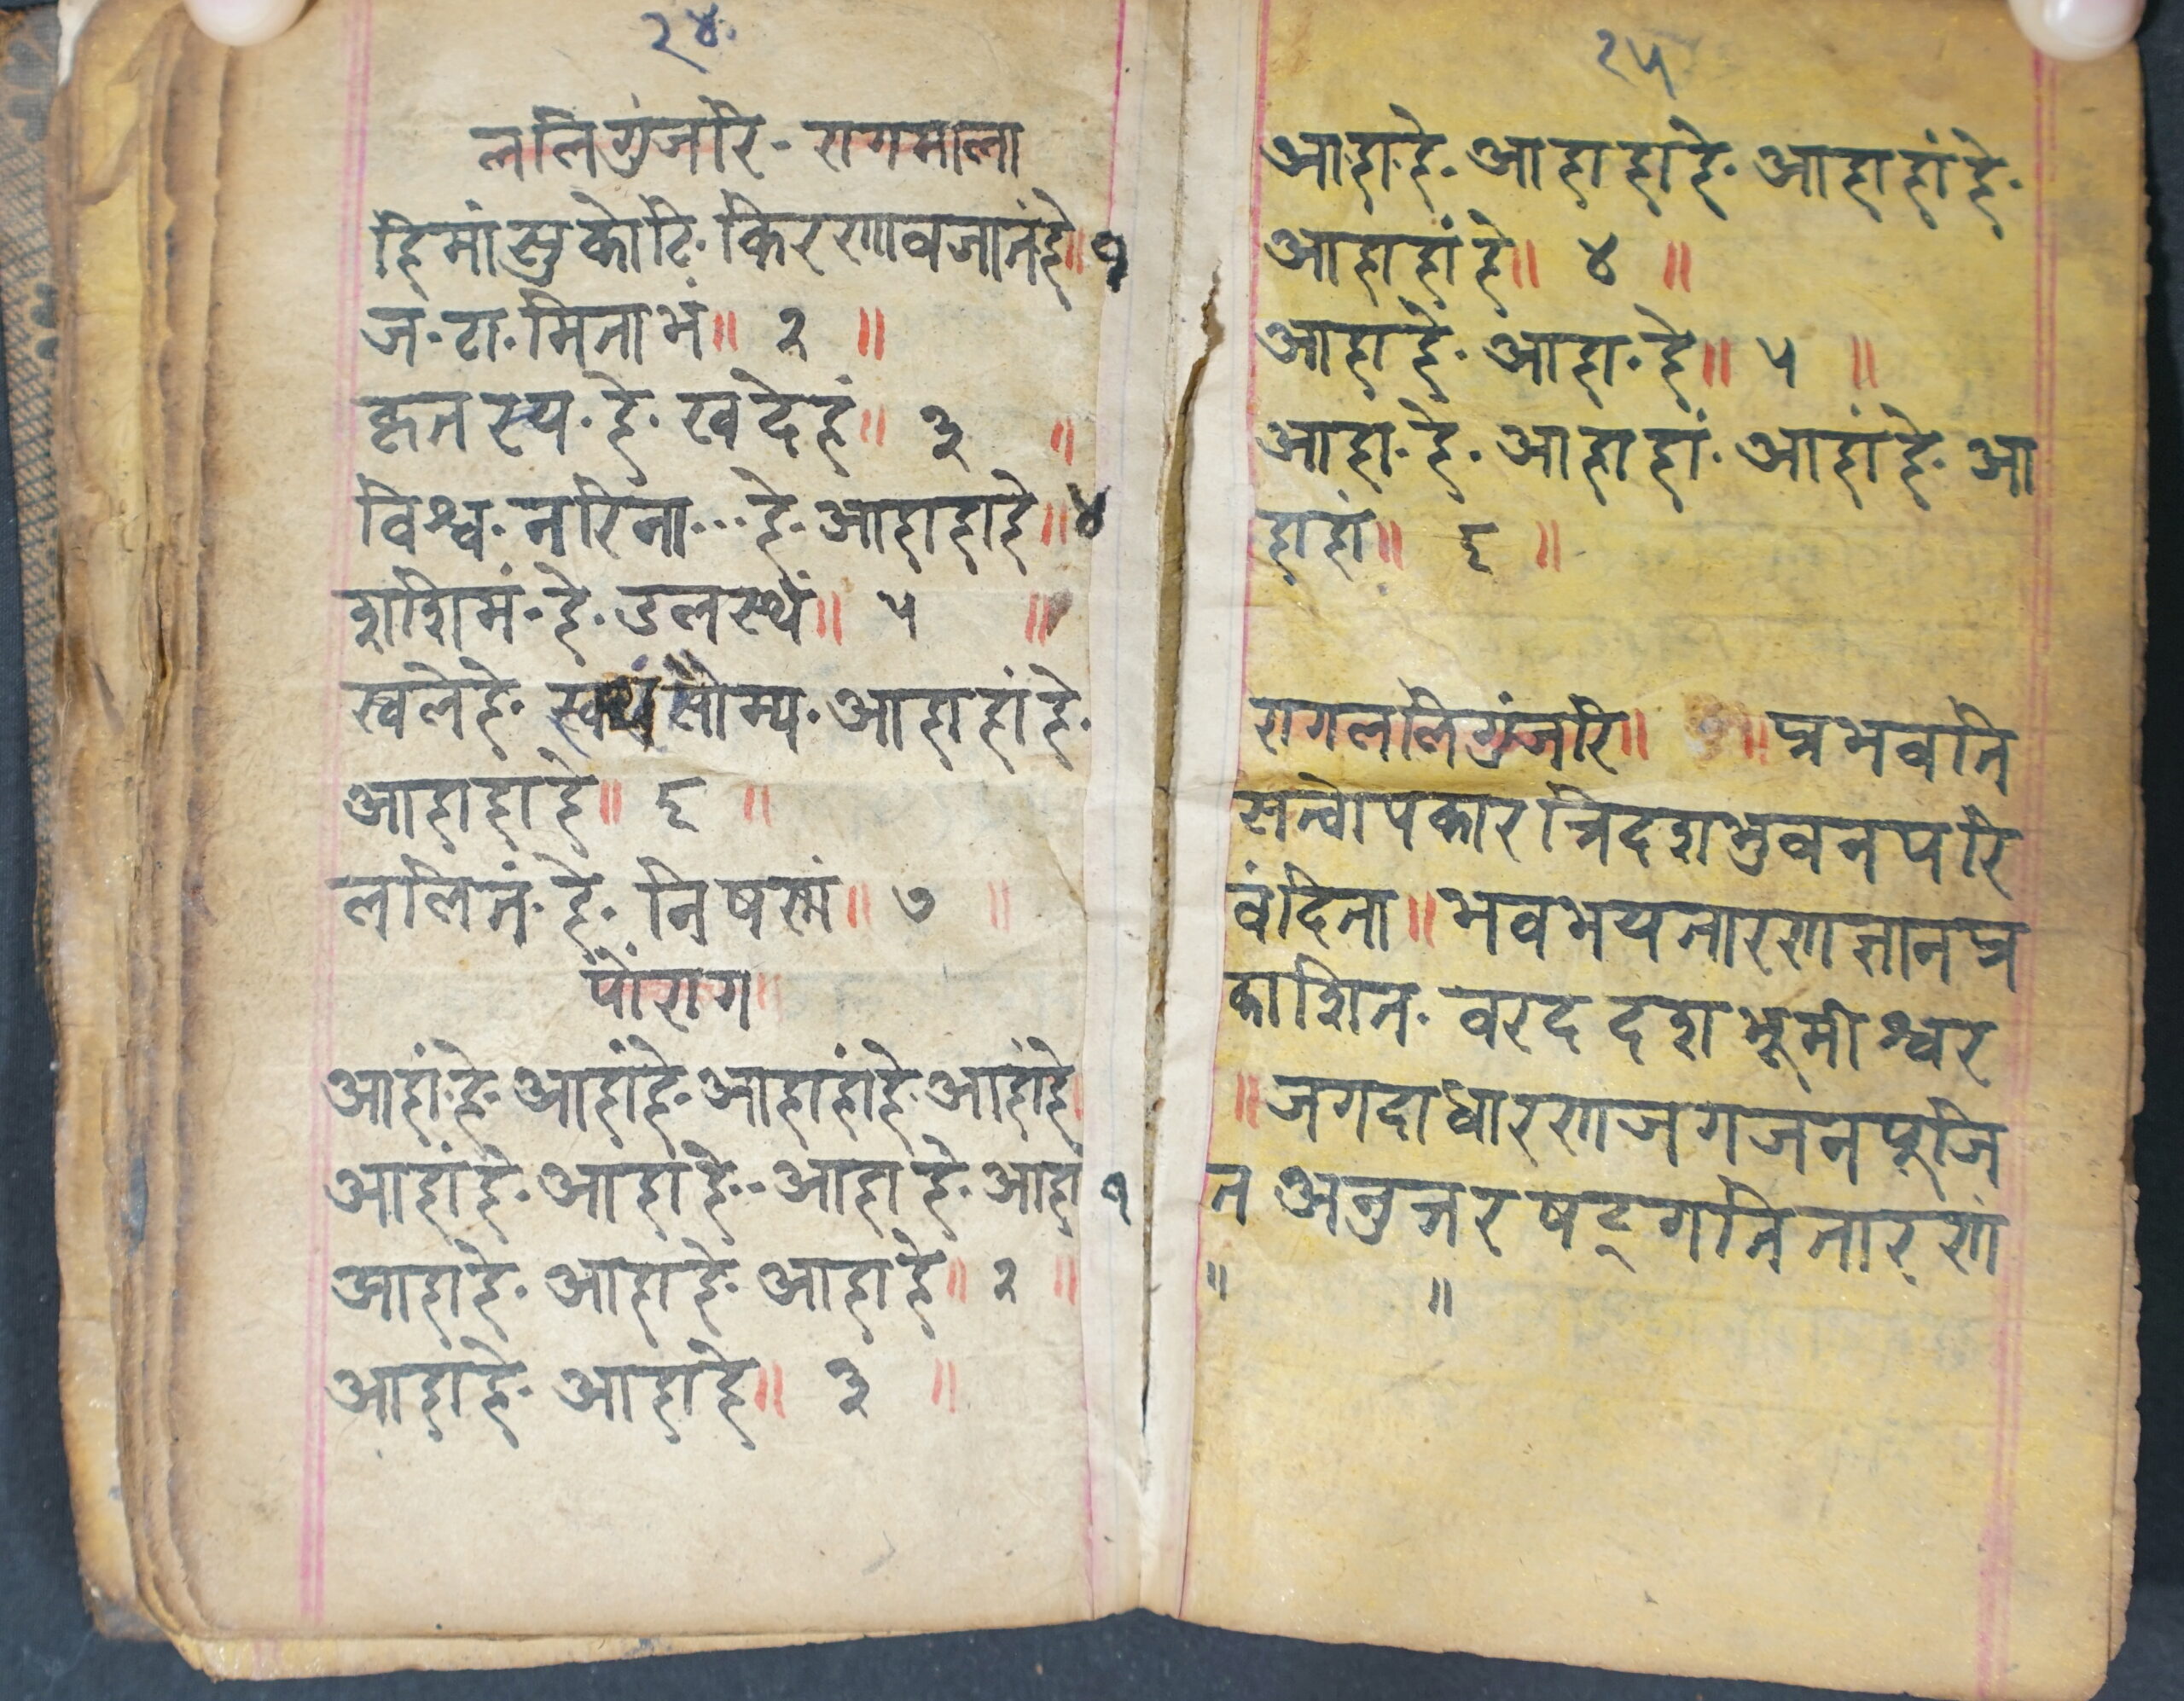 २४
ललिगुंजरि - रागमाला
हिमांसुकोटि· किरणावजानंहे॥ १
ज· टा· मिताभं॥ २ ॥
कृतस्य· हे· खदेहं॥ ३ ॥
विश्व· नरिना··· हे· आहाहाहे॥ ४
शशिमं· हे· उलस्थं॥ ५ ॥
स्वलेहे· सौम्य· आहाहांहे·
आहाहाहे॥ ६ ॥
ललितं· हे· ॥ ७ ॥
पोंराग॥
आहां· हे· आहांहे· आहाहांहे· आहांहे
आहांहे· आहांहे·· आहाहे· आहा १
आहाहे· आहाहे· आहाहे॥ २ ॥
आहांहे· आहांहे॥ ३ ॥
२५
आहा· हे· आहाहाहे· आहाहांहे·
आहाहांहे॥ ४ ॥
आहाहे· आहा· हे॥ ५ ॥
आहा· हे· आहाहां· आहांहे· आ
हाहां॥ ६ ॥
रागललिगुंजरि॥ ॥प्रभवति
सत्वोपकार त्रिदशभुवनपरि
वंदिता॥भवभयतारणज्ञानप्र
काशित· वरद दशभूमीश्वर
॥जगदाधारणजगजनपूजि
त अनुत्तरषट्गतितारणं
॥ ॥